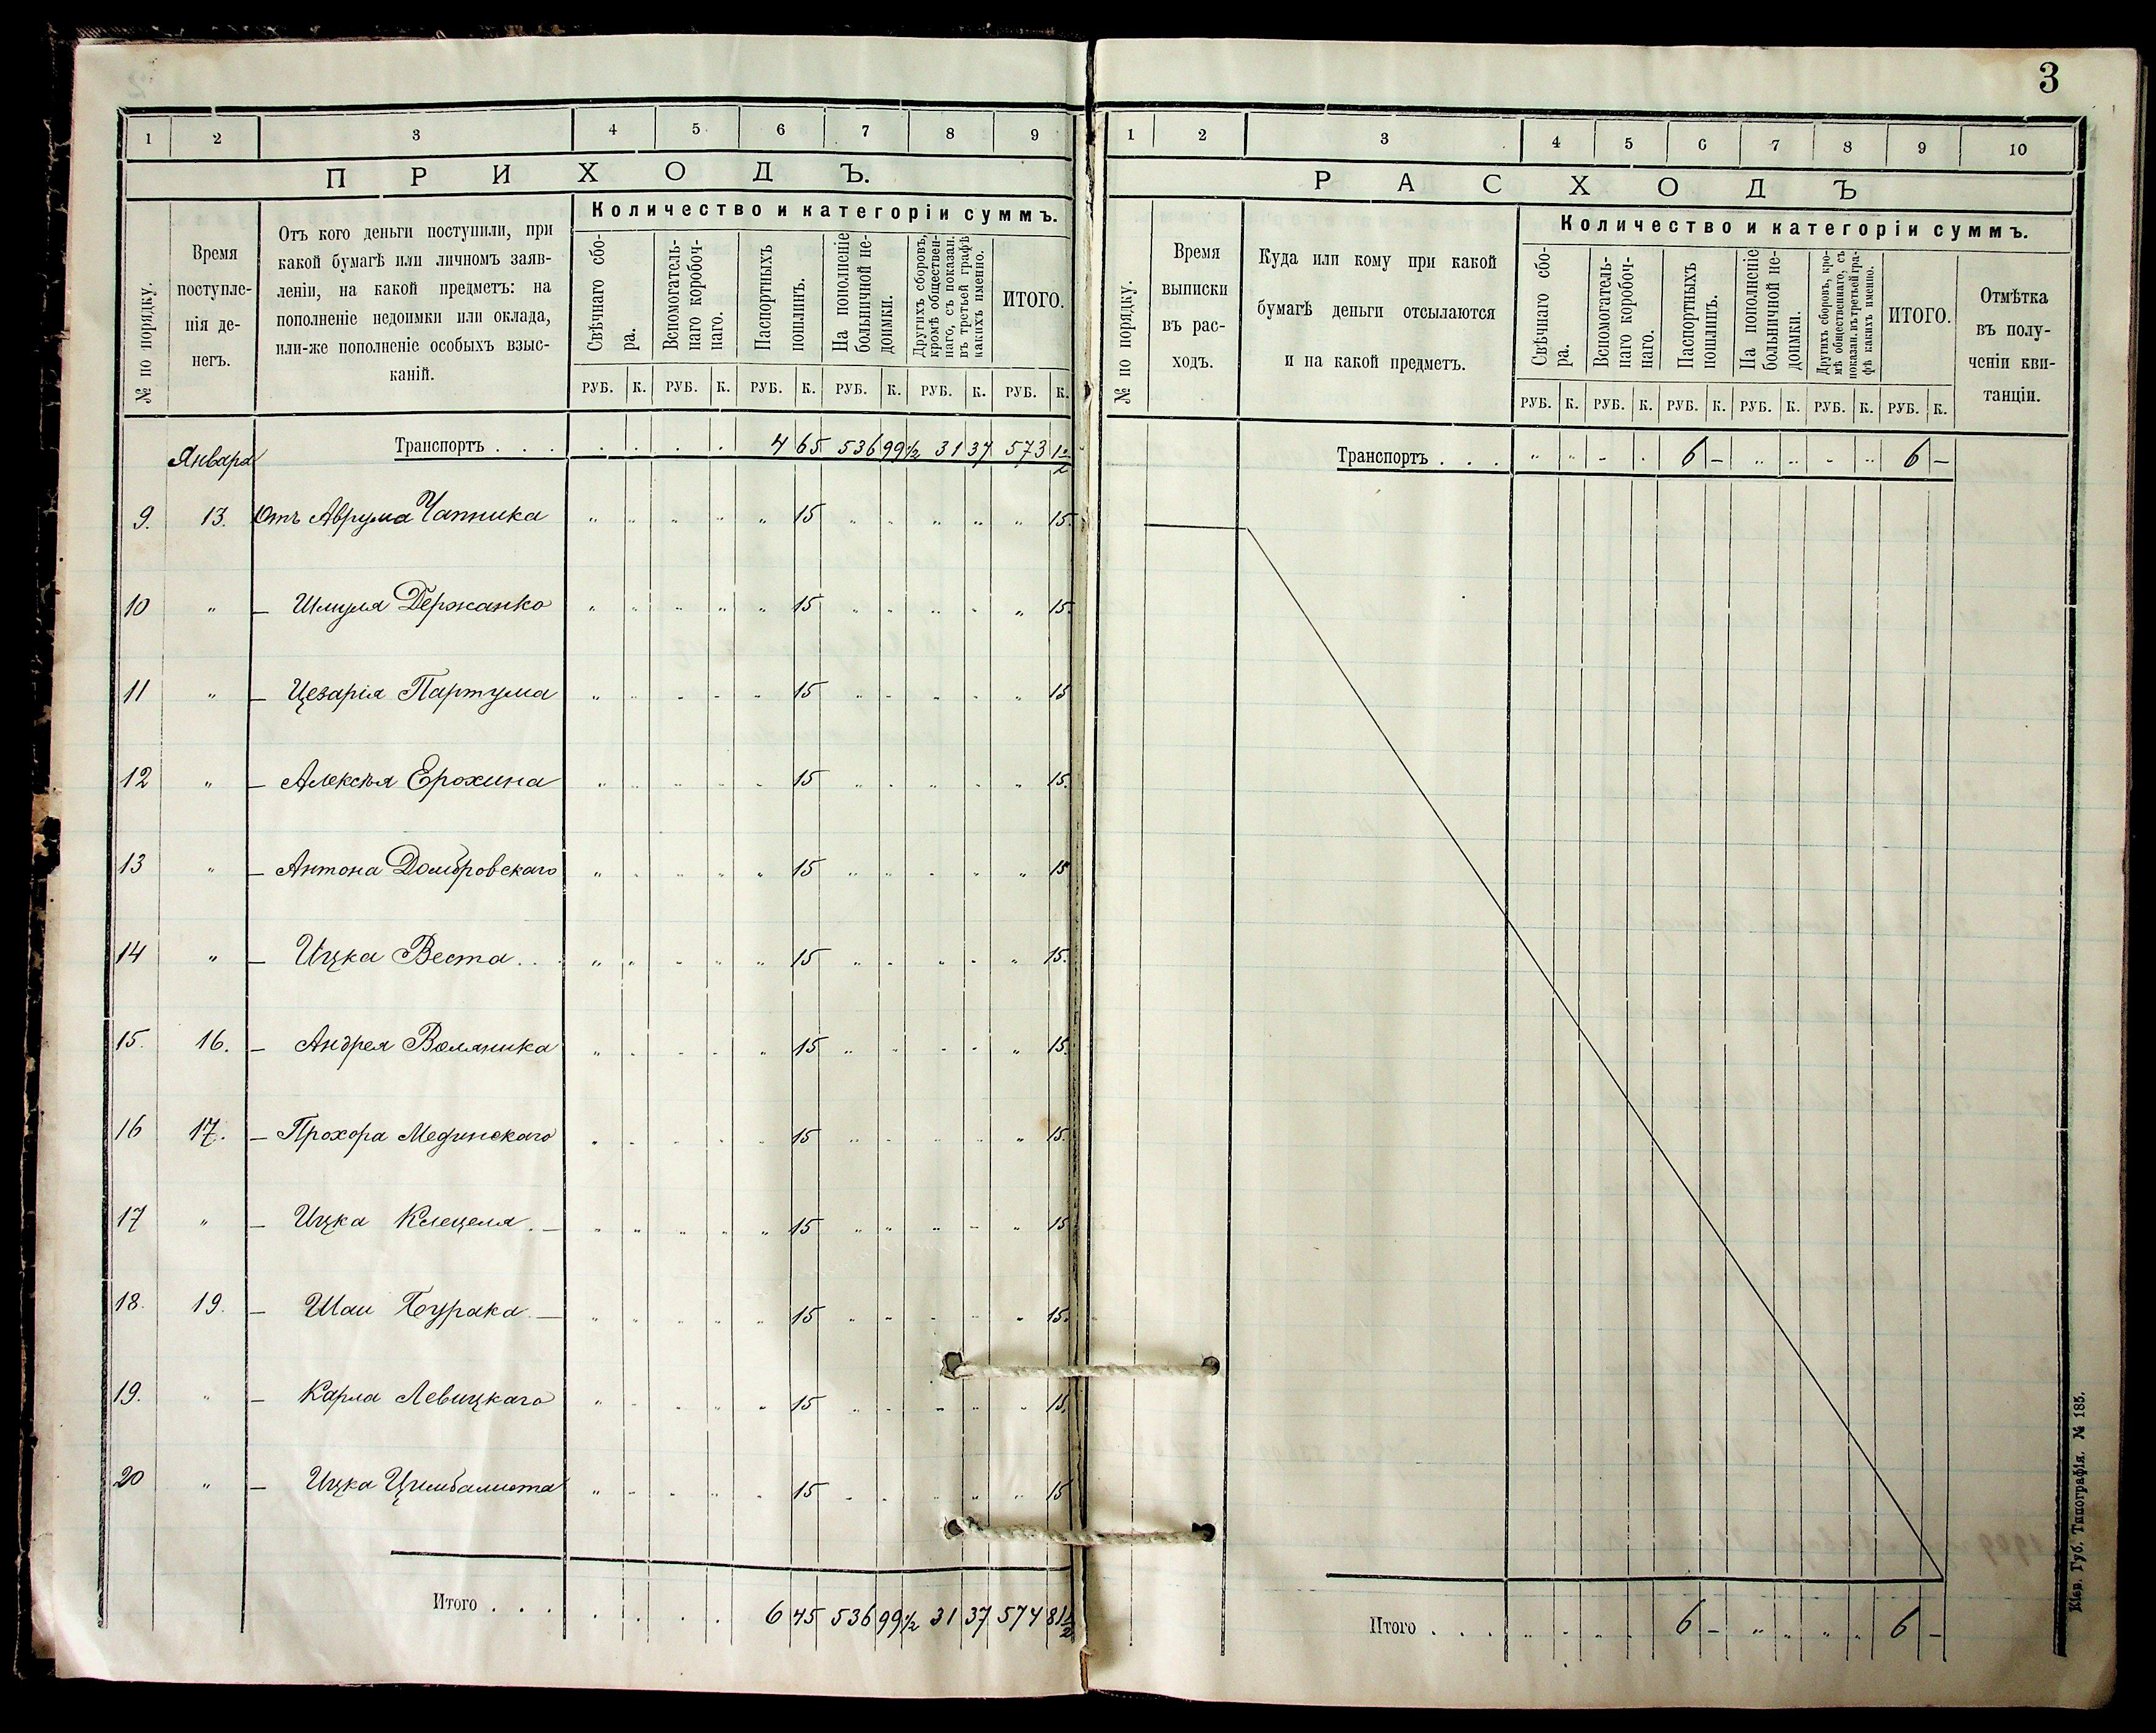 3
1 2 3 4 5 6 7 8 9
ПРИХОДЪ.
№ по порядку.
Время
поступле-
нія де-
негъ.
Отъ кого деньги поступили, при
какой бумагѣ или личномъ заяв-
леніи, на какой предметъ: на
пополненіе недоимки или оклада,
или-же пополненіе особыхъ взыс-
каній.
Количество и категоріи суммъ.
Свѣчнаго сбо-
ра.
Вспомогатель-
наго коробоч-
наго.
Паспортныхъ
пошлинъ.
На пополненіе
больничной не-
доимки.
Другихъ сборовъ,
кромѣ обществен-
наго, съ показан.
въ третьей графѣ
какихъ именно.
ИТОГО.
РУБ. К. РУБ. К. РУБ. К. РУБ. К. РУБ. К. РУБ. К.
Января Транспортъ . . . . . . . 4 65 536 99½ 31 37 573 1½
9. 13. Отъ Аврума Чапника " " " " " 15 " " " " " 15.
10 " — Шмуля Держанко " " " " " 15 " " " " " 15.
11 " — Цезарія Партума " " " " " 15 " " " " " 15
12 " — Алексѣя Ерохина " " " " " 15 " " " " " 15.
13 " — Антона Домбровскаго " " " " " 15 " " " " " 15
14 " — Ицка Веста . . " " " " " 15 " " " " " 15.
15. 16. — Андрея Воляника " " " " " 15 " " " " " 15.
16 17. — Прохора Мединскаго " " " " " 15 " " " " " 15.
17 " — Ицка Клецеля. — " " " " " 15 " " " " " 15
18. 19. — Шаи Бурака. — " " " " " 15 " " " " " 15.
19. " — Карла Левицкаго " " " " " 15 " " " " " 15.
20 " — Ицка Цимбалиста " " " " " 15 " " " " " 15
Итого . . . . . . . 6 45 536 99½ 31 37 574 81½
1 2 3 4 5 6 7 8 9 10
РАСХОДЪ
№ по порядку.
Время
выписки
въ рас-
ходъ.
Куда или кому при какой
бумагѣ деньги отсылаются
и на какой предметъ.
Количество и категоріи суммъ.
Свѣчнаго сбо-
ра.
Вспомогатель-
наго коробоч-
наго.
Паспортныхъ
пошлинъ.
На пополненіе
больничной не-
доимки.
Другихъ сборовъ, кро-
мѣ общественнаго, съ
показан. въ третьей гра-
фѣ какихъ именно.
ИТОГО.
Отмѣтка
въ полу-
ченіи кви-
танціи.
РУБ. К. РУБ. К. РУБ. К. РУБ. К. РУБ. К. РУБ. К.
Транспортъ . . . " " " " 6 — " " " " 6 —
Итого . . . " " " " 6 — " " " " 6 —
Кіев. Губ. Типографія. № 185.